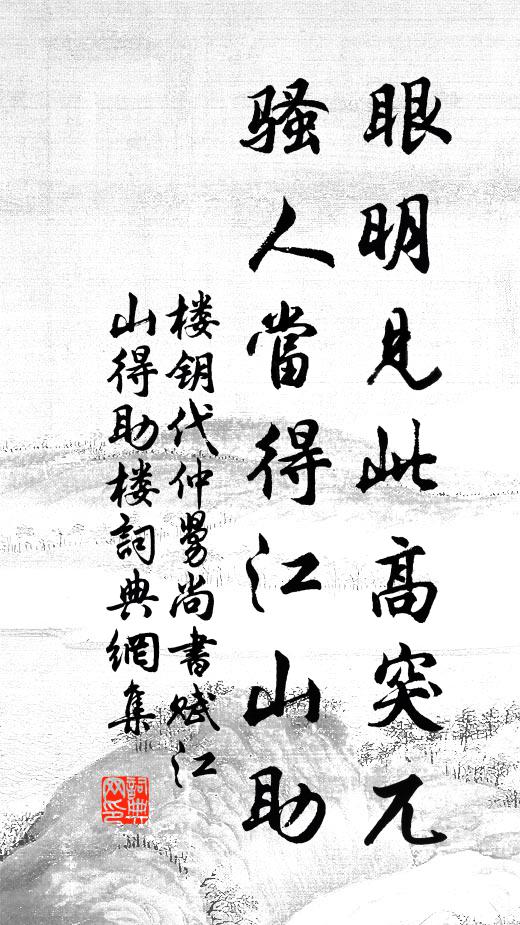 眼明見此高突兀
騷人當得江山助
楼钥代仲舅尚書赋江
山得助楼詞典網集
詞典
网印